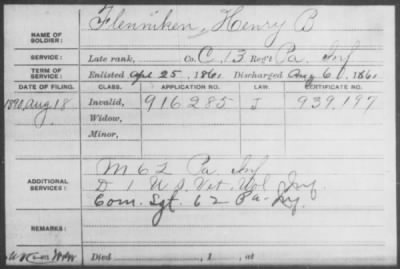 NAME OF SOLDIER: Flenniken, Henry B
SERVICE: Late rank, Co. C, 13 Reg't Pa. Inf
TERM OF SERVICE: Enlisted Apr 25, 1861 Discharged Aug 6, 1861
DATE OF FILING. CLASS. APPLICATION NO. LAW. CERTIFICATE NO.
1890, Aug 18 Invalid, 916285 J 939,197
Widow,
Minor,
ADDITIONAL SERVICES: M 62 Pa Inf
D 1 U S Vet. Vol. Inf.
Com. Sgt. 62 Pa. Inf.
REMARKS:
Died , 1 , at